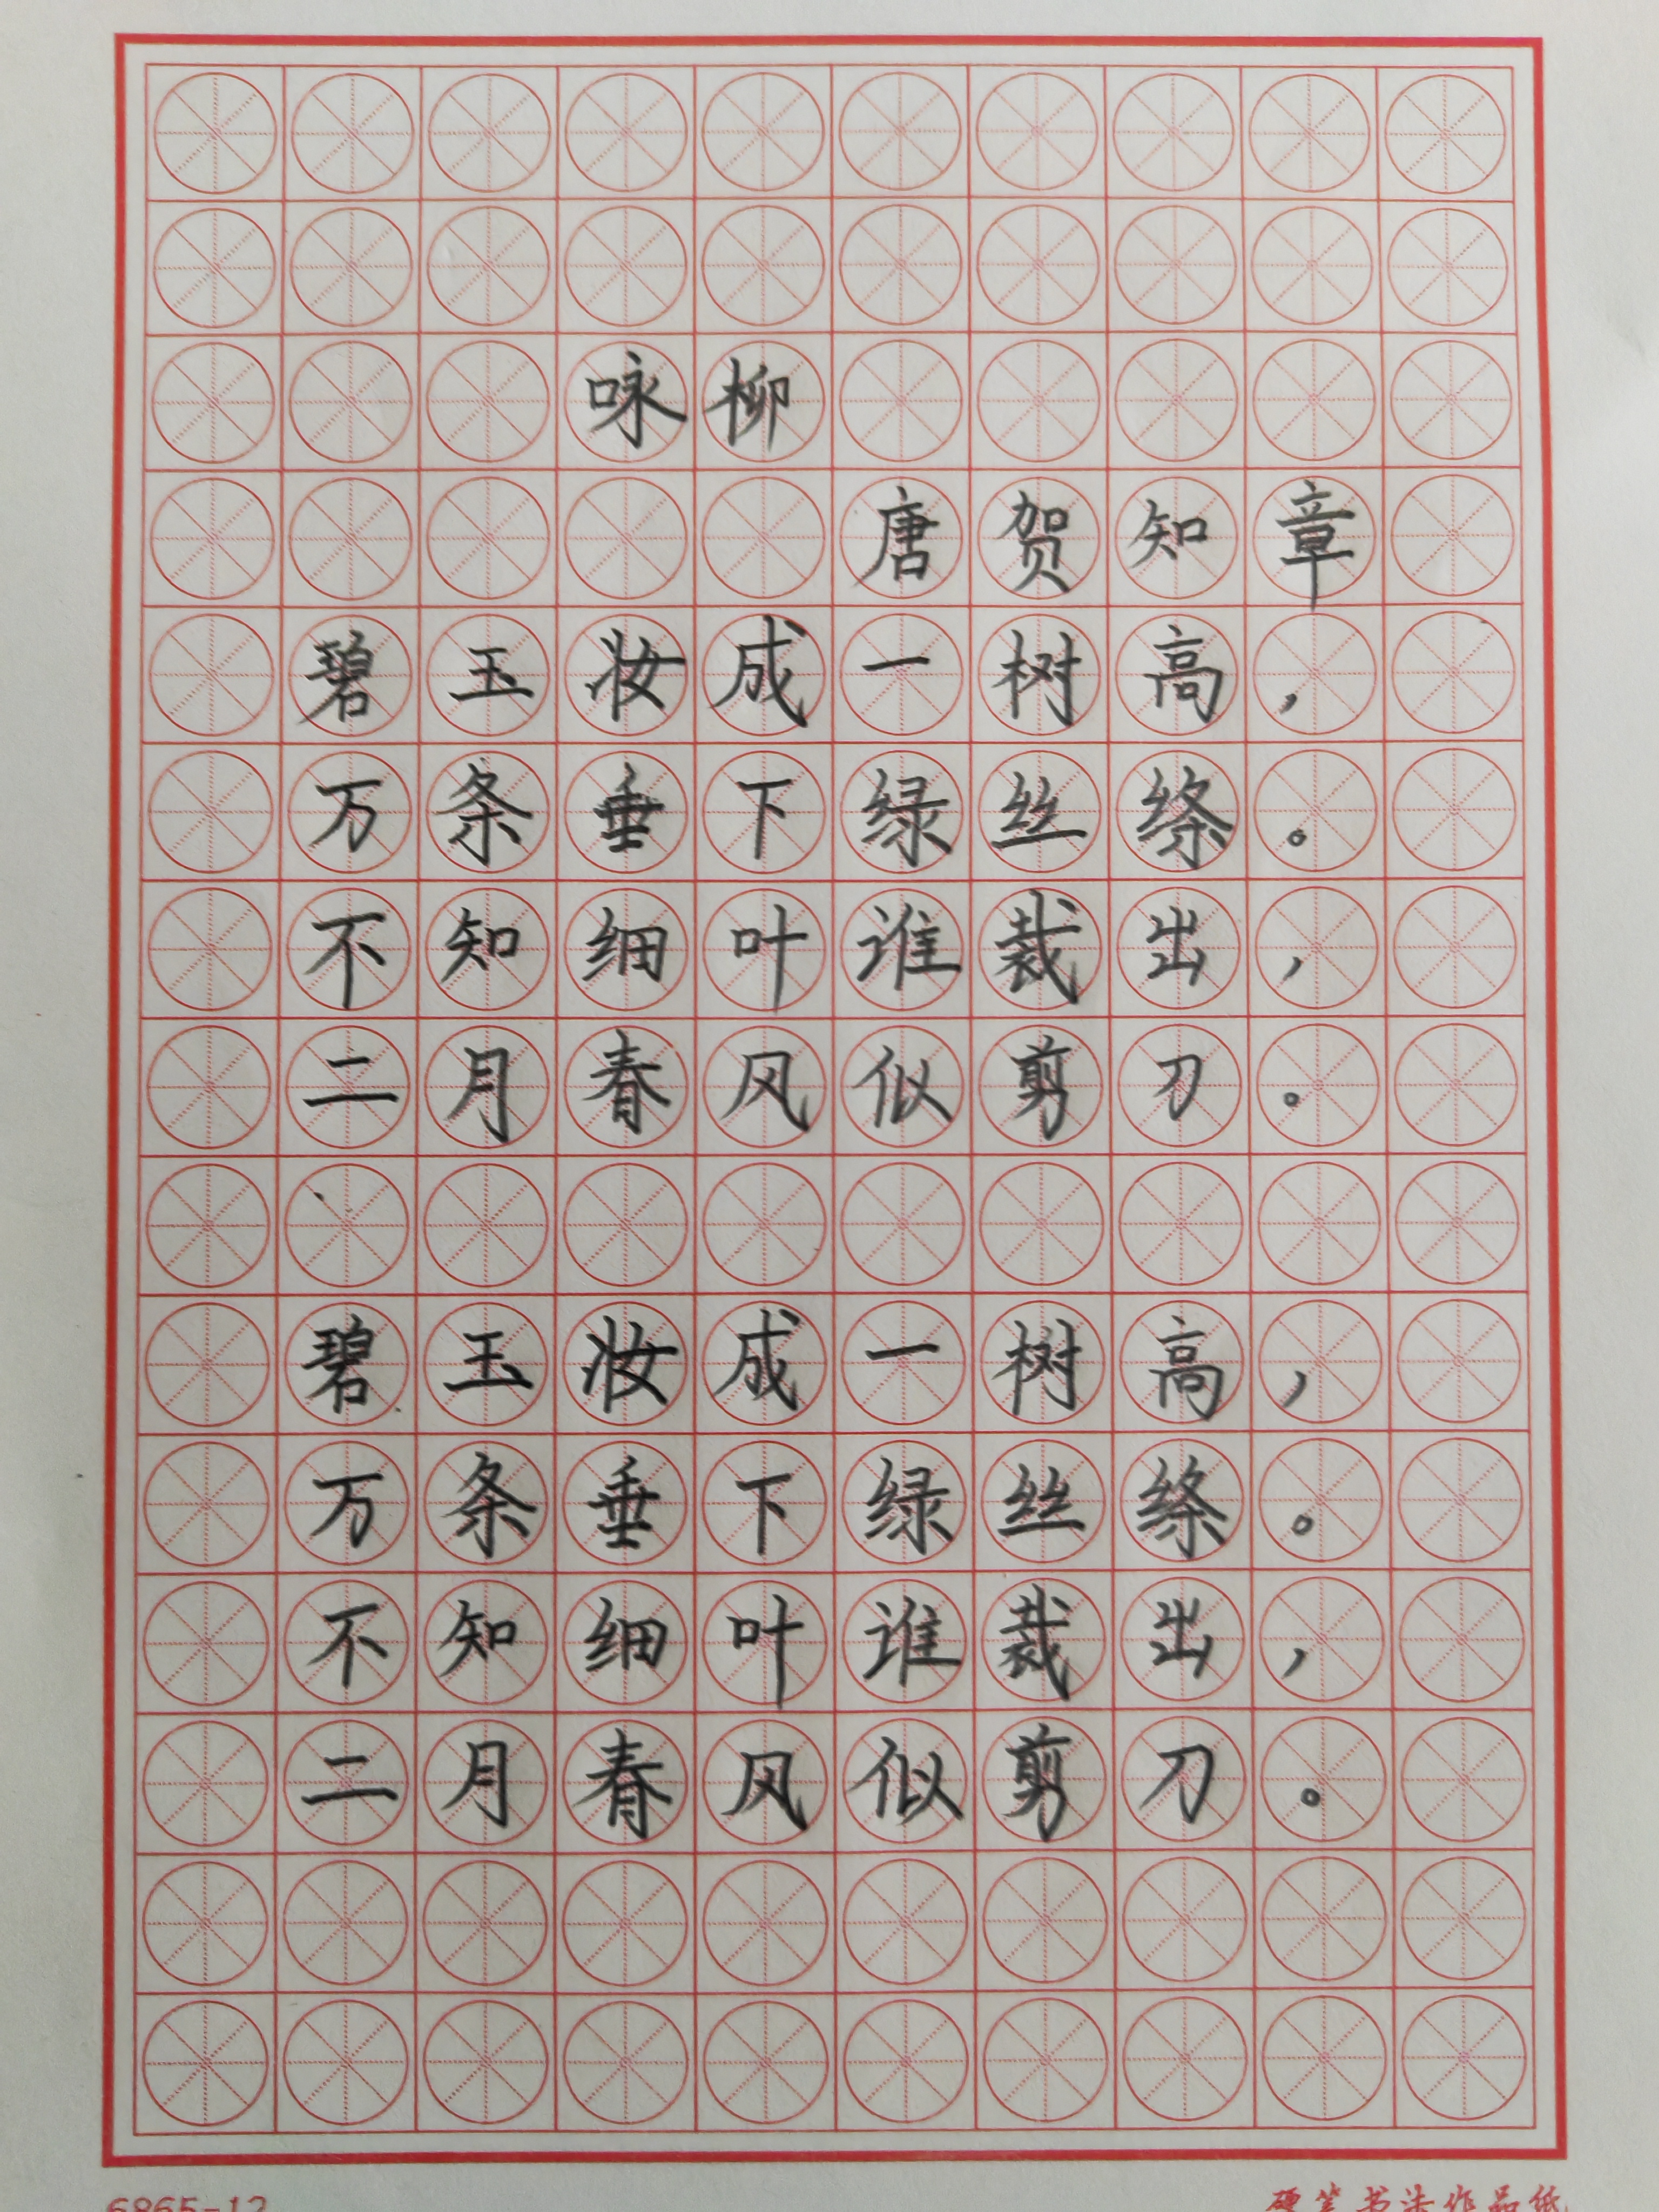 咏柳
唐贺知章
碧玉妆成一树高，
万条垂下绿丝绦。
不知细叶谁裁出，
二月春风似剪刀。
碧玉妆成一树高，
万条垂下绿丝绦。
不知细叶谁裁出，
二月春风似剪刀。
6865-12
硬笔书法作品纸